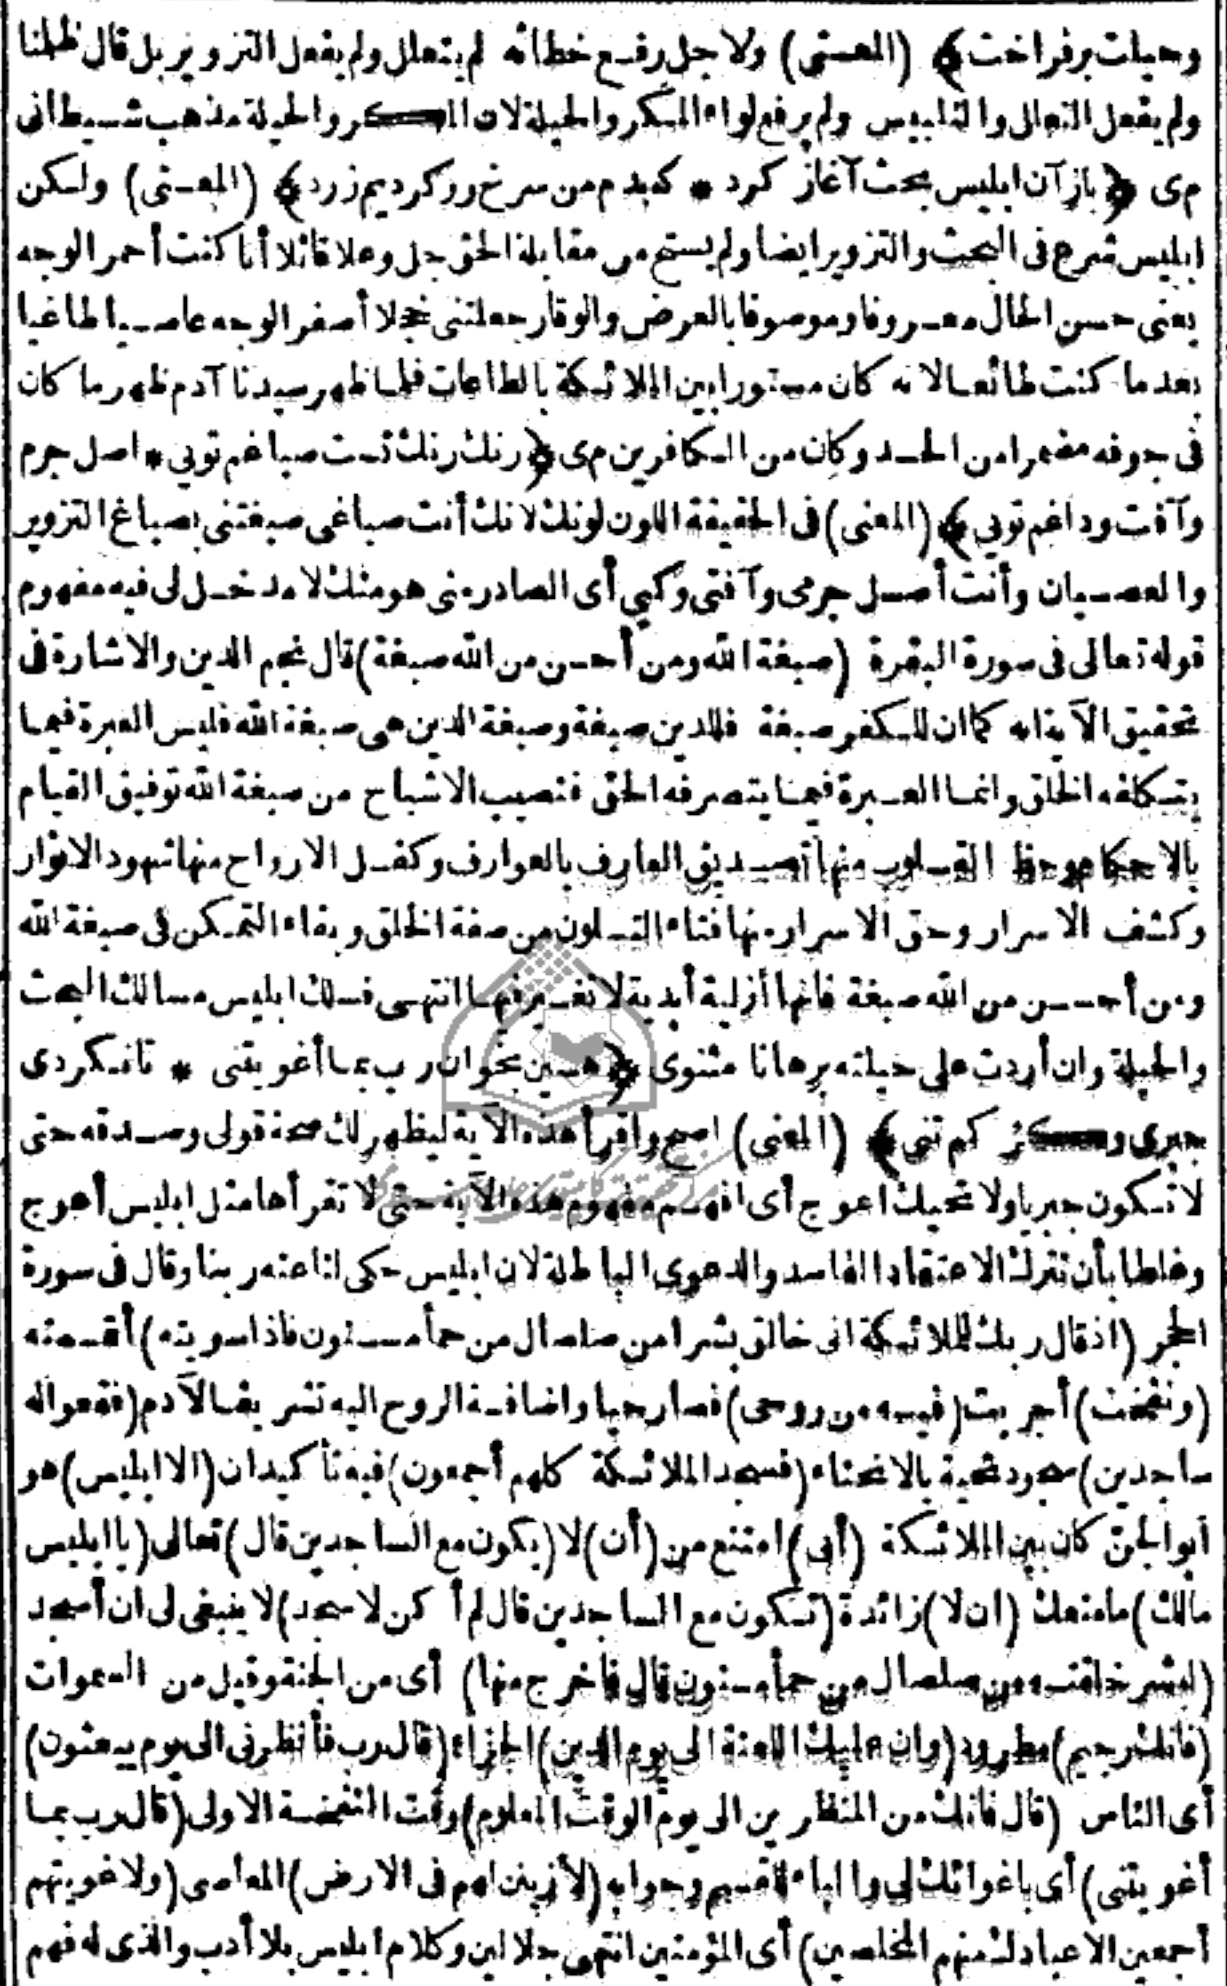 وحيلت برفراخت﴾ (المعنى) ولاجل رفع خطائه لم يتعلل ولم يفعل التزوير بل قال ظلمنا
ولم يفعل التعالل والتلبيس ولم يرفع لواء المكر والحيلة لان المكر والحيلة مذهب شيطانى
مى ﴿باز آن ابليس بحث آغاز كرد * كه بدم من سرخ رو كرديم زرد﴾ (المعنى) ولكن
ابليس شرع فى البحث والتزوير ايضا ولم يستح من مقابلة الحق جل وعلا قائلا أنا كنت أحمر الوجه
يعنى حسن الحال معروفا وموصوفا بالعرض والوقار جعلتنى خجلا أصفر الوجه عاصيا طاغيا
بعد ما كنت طائعا لانه كان مستورا بين الملائكة بالطاعات فلما ظهر سيدنا آدم ظهر ما كان
فى جوفه مضمرا من الحسد وكان من الكافرين مى ﴿رنك رنك تست صباغم تويى * اصل جرم
وآفت وداغم تويى﴾ (المعنى) فى الحقيقة اللون لونك لانك أنت صباغى صبغتنى بصباغ التزوير
والعصيان وأنت أصل جرمى وآفتى وكيى أى الصادر منى هو منك لا مدخل لى فيه مفهوم
قوله تعالى فى سورة البقرة (صبغة الله ومن أحسن من الله صبغة) قال نجم الدين والاشارة فى
تحقيق الآية انه كما ان للكفر صبغة فللدين صبغة وصبغة الدين هى صبغة الله فليس العبرة فيما
يتكلفه الخلق وانما العبرة فيما يتصرفه الحق فنصيب الاشباح من صبغة الله توفيق القيام
بالاحكام وحظ القلوب منها تصديق العارف بالعوارف وكفل الارواح منها شهود الانوار
وكشف الاسرار وحق الاسرار منها فناء التلون من صفة الخلق وبقاء التمكن فى صبغة الله
ومن أحسن من الله صبغة فانها أزلية أبدية لا تغير فيها انتهى فسلك ابليس مسالك البحث
والحيلة وان أردت على حيلته برهانا مثنوى ﴿هين بخوان رب بما أغويتنى * تا نكردى
جبرى وكژ كم تنى﴾ (المعنى) اصح واقرأ هذه الآية ليظهر لك صحة قولى وصدقه حتى
لا تكون جبريا ولا تحيك اعوج أى افهم مفهوم هذه الآية حتى لا تقرأها مثل ابليس أعوج
وغلطا بأن تترك الاعتقاد الفاسد والدعوى الباطلة لان ابليس حكى لنا عنه ربنا وقال فى سورة
الحجر (اذ قال ربك للملائكة انى خالق بشرا من صلصال من حمأ مسنون فاذا سويته) أتممته
(ونفخت) أجريت (فيه من روحى) فصار حيا واضافة الروح اليه تشريف لآدم (فقعوا له
ساجدين) سجود تحية بالانحناء (فسجد الملائكة كلهم أجمعون) فيه تأكيدان (الا ابليس) هو
أبو الجن كان بين الملائكة (أبى) امتنع من (أن) لا (يكون مع الساجدين قال) تعالى (يا ابليس
مالك) ما منعك (ان لا) زائدة (تكون مع الساجدين قال لم أكن لاسجد) لا ينبغى لى ان أسجد
(لبشر خلقته من صلصال من حمأ مسنون قال فاخرج منها) أى من الجنة وقيل من السموات
(فانك رجيم) مطرود (وان عليك اللعنة الى يوم الدين) الجزاء (قال رب فأنظرنى الى يوم يبعثون)
أى الناس (قال فانك من المنظرين الى يوم الوقت المعلوم) وقت النفخة الاولى (قال رب بما
أغويتنى) أى باغوائك لى والباء للقسم وجوابه (لأزينن لهم فى الارض) المعاصى (ولاغوينهم
أجمعين الا عبادك منهم المخلصين) أى المؤمنين انتهى جلالين وكلام ابليس بلا أدب والذى له فهم